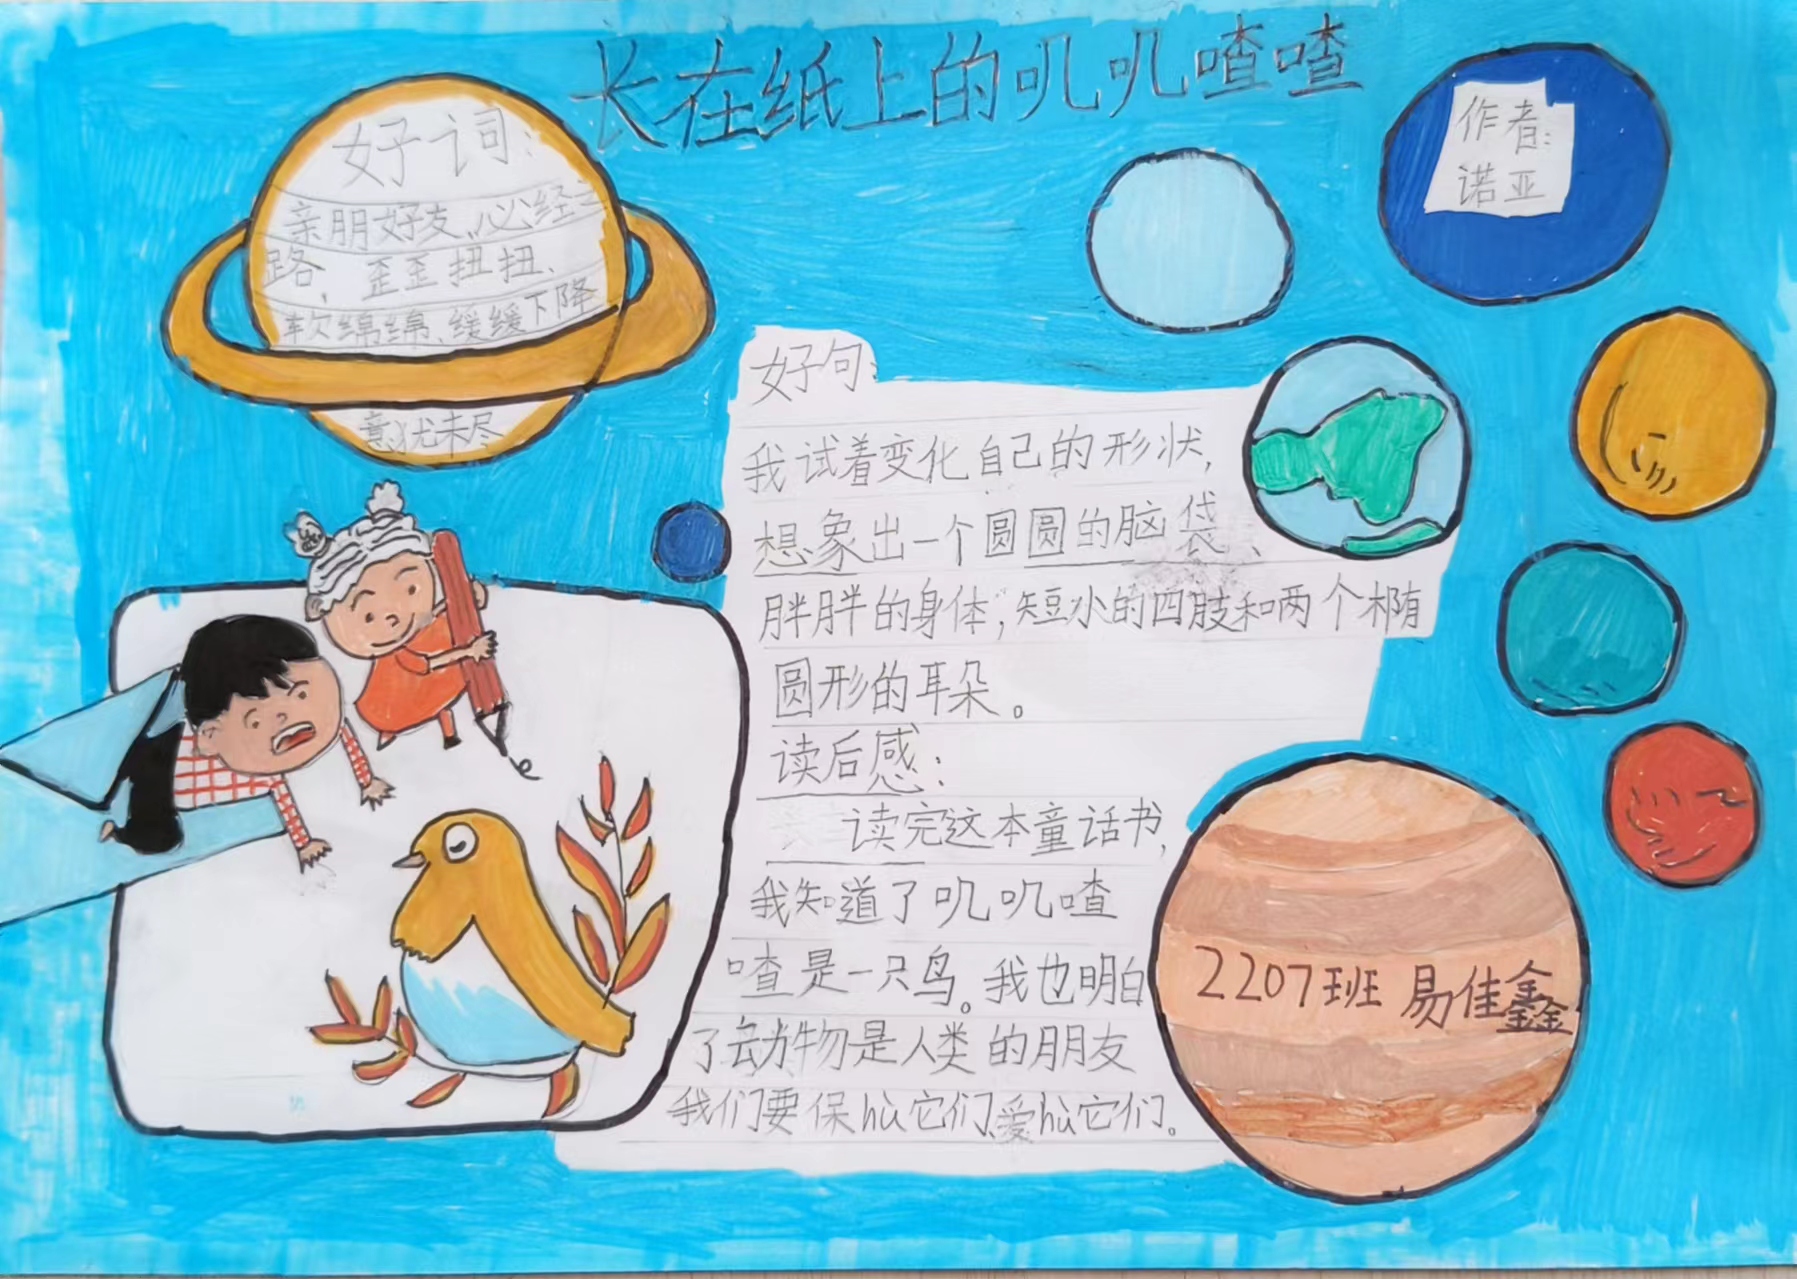 长在纸上的叽叽喳喳
作者:
诺亚
好词:
亲朋好友、必经之
路、歪歪扭扭、
软绵绵、缓缓下降
意犹未尽
好句:
我试着变化自己的形状,
想象出一个圆圆的脑袋、
胖胖的身体,短小的四肢和两个椭
圆形的耳朵。
读后感:
读完这本童话书,
我知道了叽叽喳
喳是一只鸟。我也明白
了动物是人类的朋友
我们要保hù它们、爱hù它们。
2207班 易佳鑫